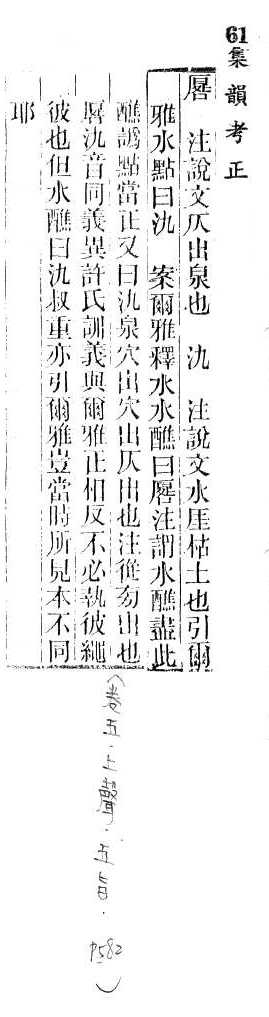 61集韻考正
厬 注說文仄出泉也 氿 注說文水厓枯土也引爾
雅水點曰氿 案爾雅釋水水醮曰厬注謂水醮盡此
醮譌點當正又曰氿泉穴出穴出仄出也注從旁出也
厬氿音同義異許氏訓義與爾雅正相反不必執彼繩
彼也但水醮曰氿叔重亦引爾雅豈當時所見本不同
耶
(卷五.上聲.五旨.P582)